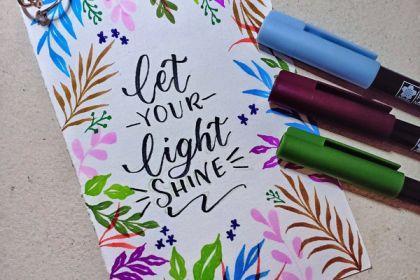 let
-YOUR-
light
SHINE